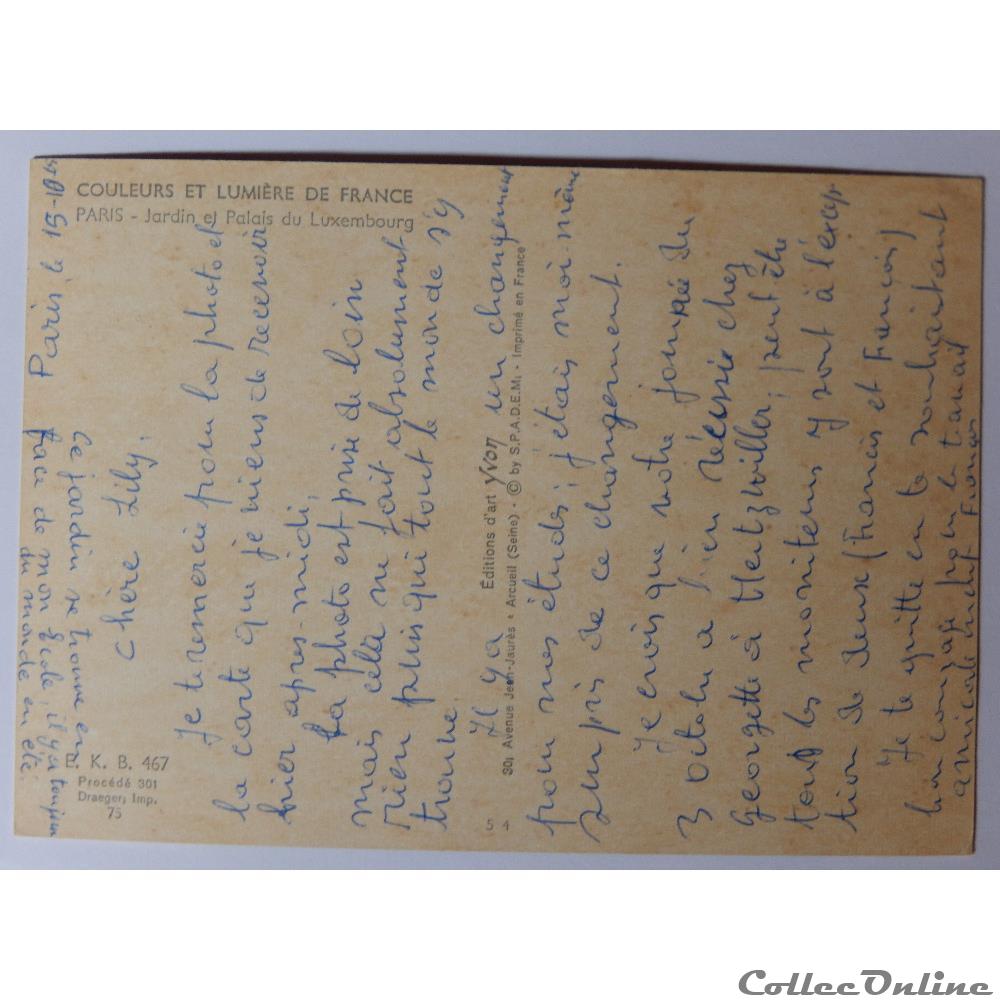 COULEURS ET LUMIÈRE DE FRANCE
PARIS - Jardin et Palais du Luxembourg
Paris, le 15-10
Ce jardin se trouve en
face de mon école, il y a toujours
du monde en été
Chère Lily,
Je te remercie pour la photo et
la carte que je viens de recevoir
hier après-midi,
La photo est prise de loin
mais cela ne fait absolument
rien puisque tout le monde s'y
trouve.
Il y a un changement
pour mes études; j'étais moi-même
surpris de ce changement.
Je crois que votre journée du
3 octobre a bien réussie chez
Georgette à Mertzwiller; peut être
tous les moniteurs y sont à l'excep-
tion de deux (Francis et François)
Je te quitte en te souhaitant
bon courage pour le travail
amicalement François
E. K. B. 467
Procédé 301
Draeger, Imp.
75
Éditions d'art Yvon
30, Avenue Jean-Jaurès • Arcueil (Seine) - © by S.P.A.D.E.M. - Imprimé en France
5 4
CollecOnline